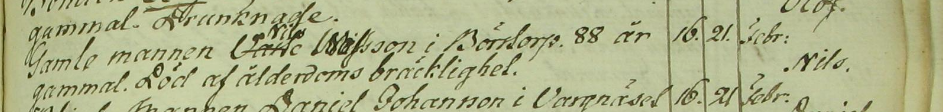 gammal. Drunknade.
Nils
Gamle mannen Nilsson i Börstorp. 88 år 16. 21. Febr:
gammal. Död af ålderdoms bräcklighet. Nils.
Mannen Daniel Johansson i Vargnäset 16. 21 Febr.